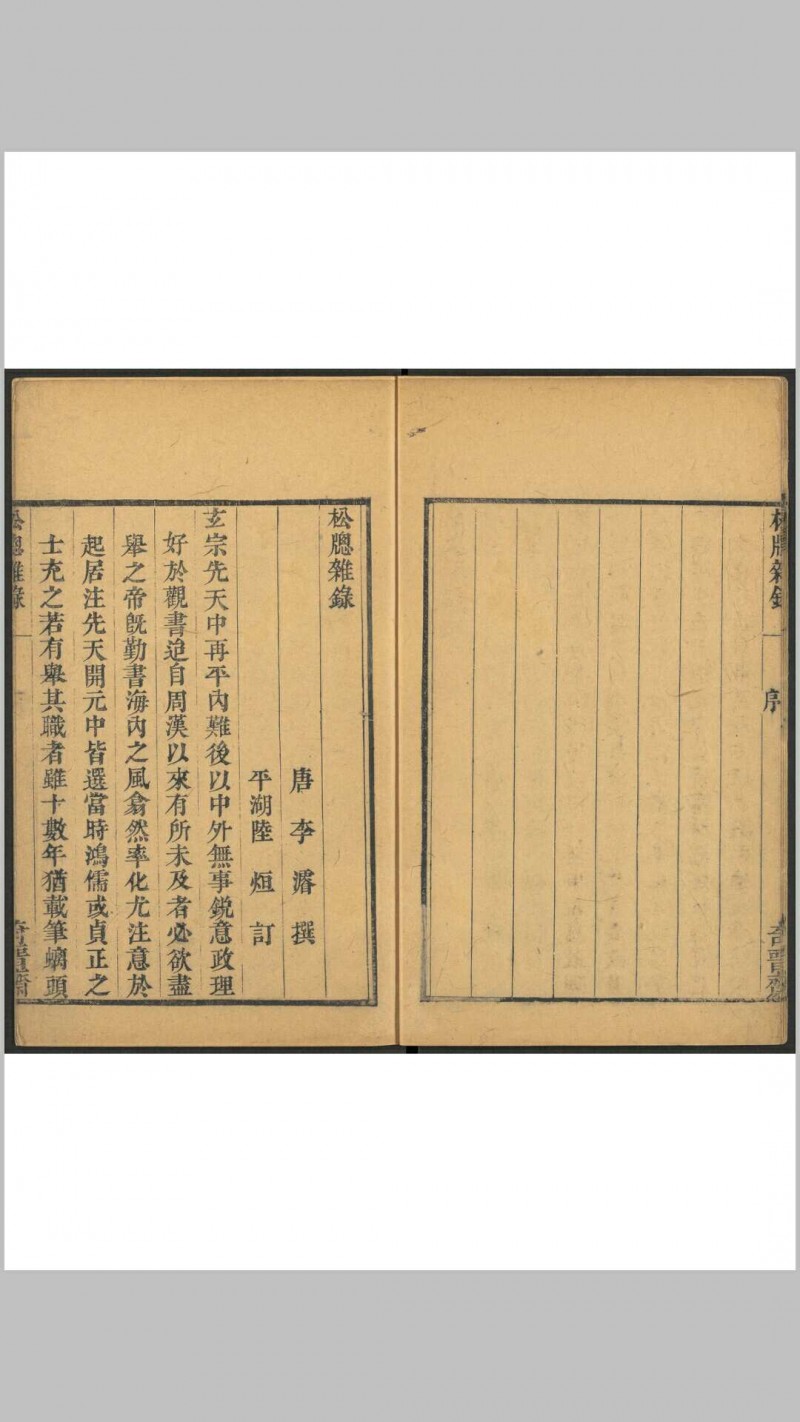 松牕雜錄
序
奇晉齋
松牕雜錄
唐李濬撰
平湖陸烜訂
玄宗先天中再平內難後以中外無事銳意政理
好於觀書迨自周漢以來有所未及者必欲盡
舉之帝既勤書海內之風翕然率化尤注意於
起居注先天開元中皆選當時鴻儒或貞正之
士充之若有舉其職者雖十數年猶載筆螭頭
松牕雜錄
一
奇晉齋